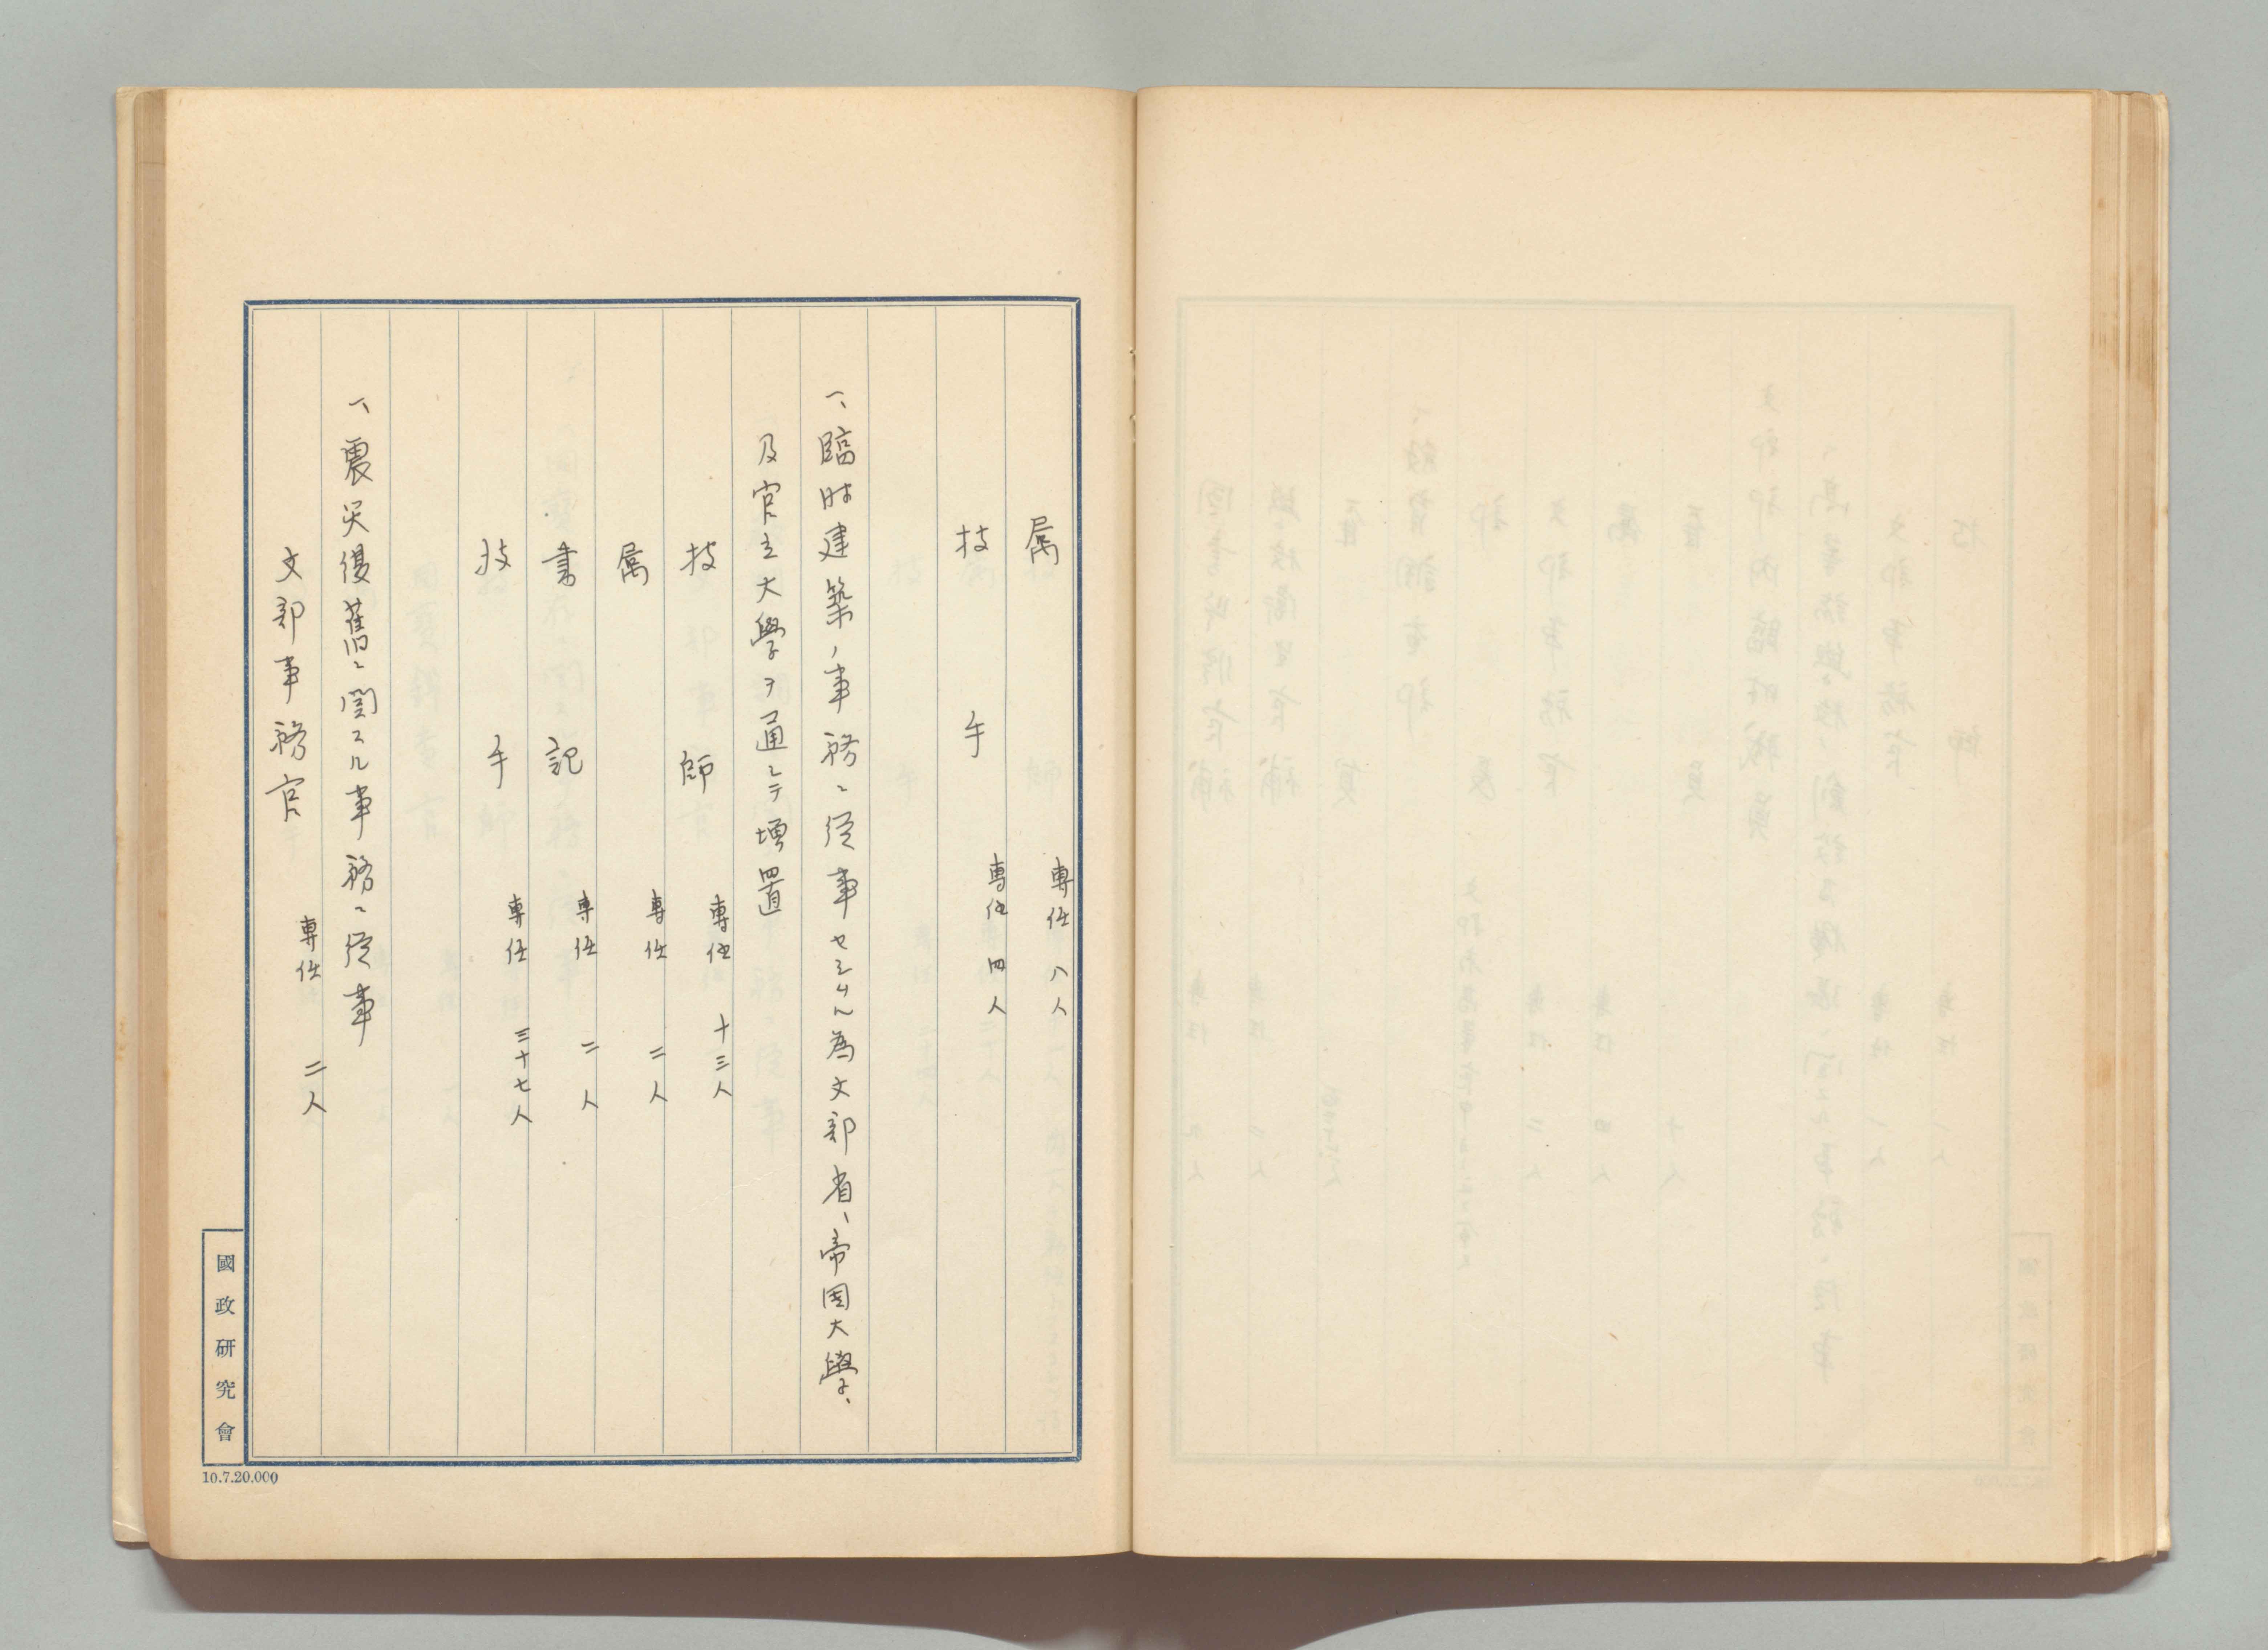 属 専任 八人
技手 専任 四人
一、臨時建築ノ事務ニ従事セシムル為文部省、帝国大學、
及官立大學ヲ通シテ増置
技師 専任 十三人
属 専任 二人
書記 専任 二人
技手 専任 三十七人
一、震災復舊ニ関スル事務ニ従事
文部事務官 専任 二人
國政研究會
10.7.20.000